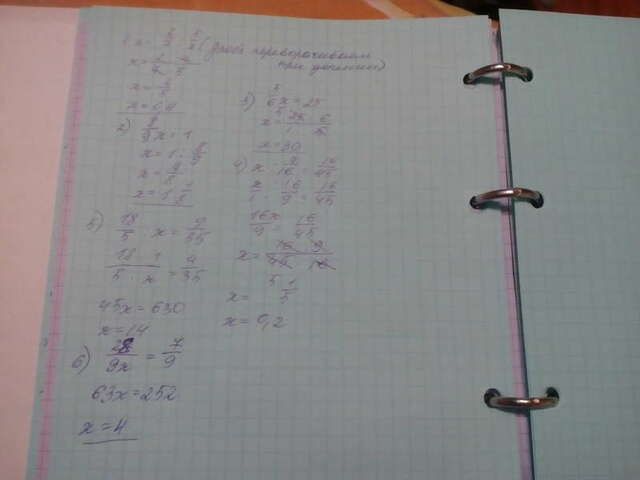 (дробь переворачиваем
при делении)
x = 0,4
2) 8/9 x = 1
x = 1 :
x =
x = 1 1/8
3) 5/6 x = 25
x = 25/1 · 6/5
x = 30
4) x : 9/16 = 16/45
x/1 · 16/9 = 16/45
16x/9 = 16/45
x = 16 · 9 / 45 · 16
x = 1/5
x = 0,2
5) 18/5 : x = 9/35
18/5 · 1/x = 9/35
45x = 630
x = 14
6) 28/9x = 7/9
63x = 252
x = 4